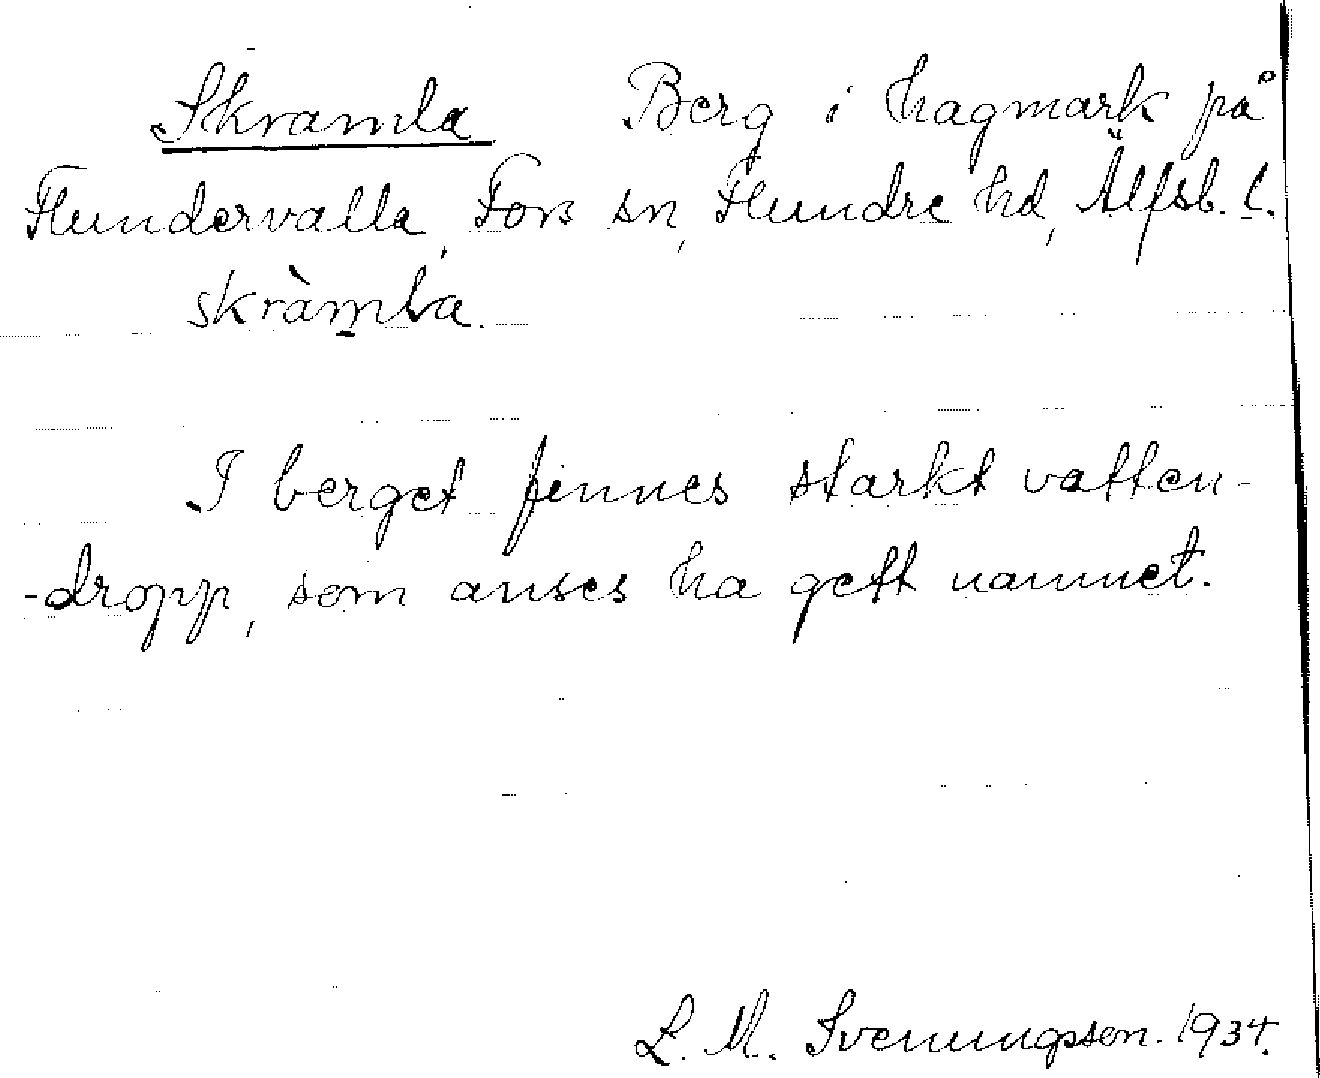 Skramla Berg i hagmark på
Flundervalla, Fors sn, Flundre hd, Älfsb. l.
skràmla.
I berget finnes starkt vatten-
-dropp, som anses ha gett namnet.
L. M. Svenungsson. 1934.